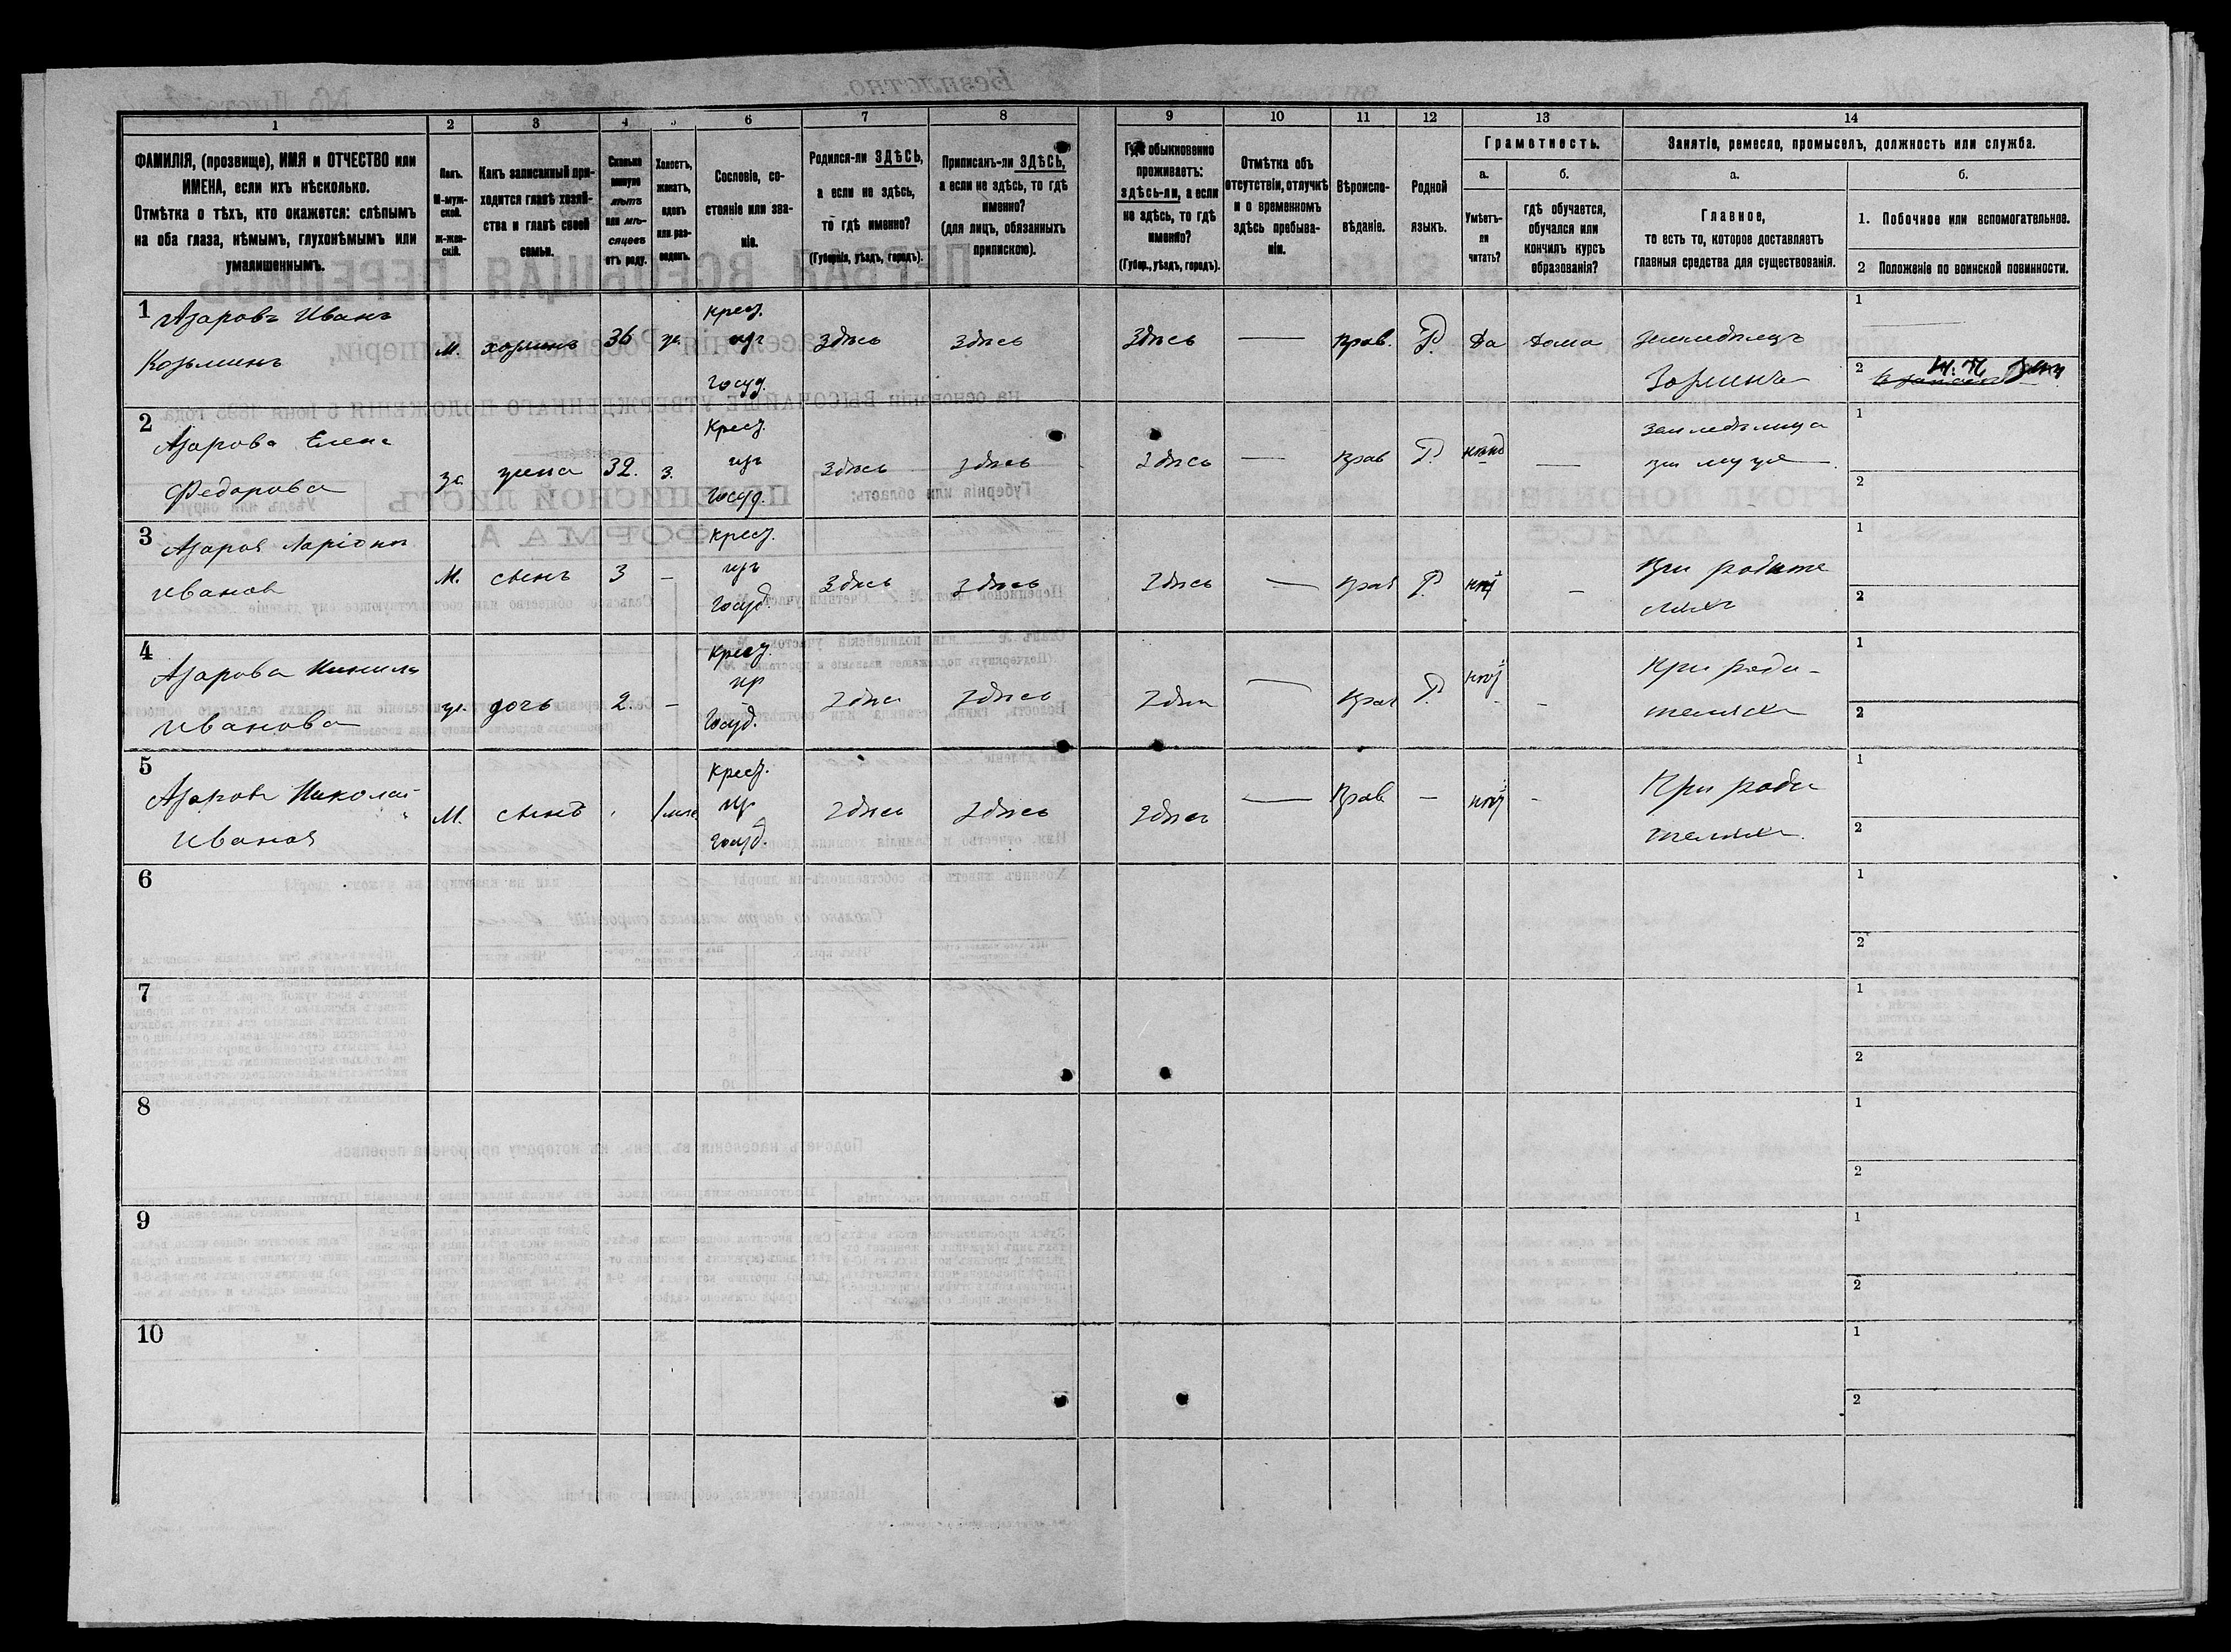 1 2 3 4 5 6 7 8 9 10 11 12 13 14
ФАМИЛІЯ, (прозвище), ИМЯ и ОТЧЕСТВО или
ИМЕНА, если ихъ нѣсколько.
Отмѣтка о тѣхъ, кто окажется: слѣпымъ
на оба глаза, нѣмымъ, глухонѣмымъ или
умалишеннымъ.
Полъ.
М-муж-
ской.
ж-жен-
скій.
Какъ записанный при-
ходится главѣ хозяй-
ства и главѣ своей
семьи.
Сколько
минуло
лѣтъ
или мѣ-
сяцевъ
отъ роду.
Холостъ,
женатъ,
вдовъ
или раз-
веденъ.
Сословіе, со-
стояніе или зва-
ніе.
Родился-ли ЗДѢСЬ,
а если не здѣсь,
то гдѣ именно?
(Губернія, уѣздъ, городъ).
Приписанъ-ли ЗДѢСЬ,
а если не здѣсь, то гдѣ
именно?
(для лицъ, обязанныхъ
припискою).
Гдѣ обыкновенно
проживаетъ:
здѣсь-ли, а если
не здѣсь, то гдѣ
именно?
(Губер., уѣздъ, городъ).
Отмѣтка объ
отсутствіи, отлучкѣ
и о временномъ
здѣсь пребыва-
ніи.
Вѣроиспо-
вѣданіе.
Родной
языкъ.
Грамотность.
а.
Умѣетъ-
ли
читать?
б.
гдѣ обучается,
обучался или
кончилъ курсъ
образованія?
Занятіе, ремесло, промыселъ, должность или служба.
а.
Главное,
то есть то, которое доставляетъ
главныя средства для существованія.
б.
1. Побочное или вспомогательное.
2 Положеніе по воинской повинности.
1 Азаровъ Иванъ
Козьминъ
М. хозяинъ 36 ж.
крест.
изъ
госуд.
здѣсь здѣсь здѣсь — прав. Р. да дома
земледѣлецъ
хозяинъ
1
2
2
Азарова Елена
Федорова
ж жена 32. з.
крест.
изъ
госуд.
здѣсь здѣсь здѣсь — прав Р. нѣтъ —
земледѣлица
при мужѣ
1
2
3 Азаров Ларіонъ
Иванов
М. сынъ 3 —
крест.
изъ
госуд
здѣсь здѣсь здѣсь — прав Р. нѣтъ —
При родите
ляхъ
1
2
4
Азарова
Иванова
ж. дочь 2. —
крест.
из
госуд.
здѣсь здѣсь здѣсь — прав Р. нѣтъ -
При роди-
теляхъ
1
2
5
Азаровъ Николай
Иванов
М. сынъ
крест.
из
госуд.
здѣсь здѣсь здѣсь — Прав — нѣтъ -
При роди
теляхъ.
1
2
6
1
2
7
1
2
8
1
2
9
1
2
10
1
2